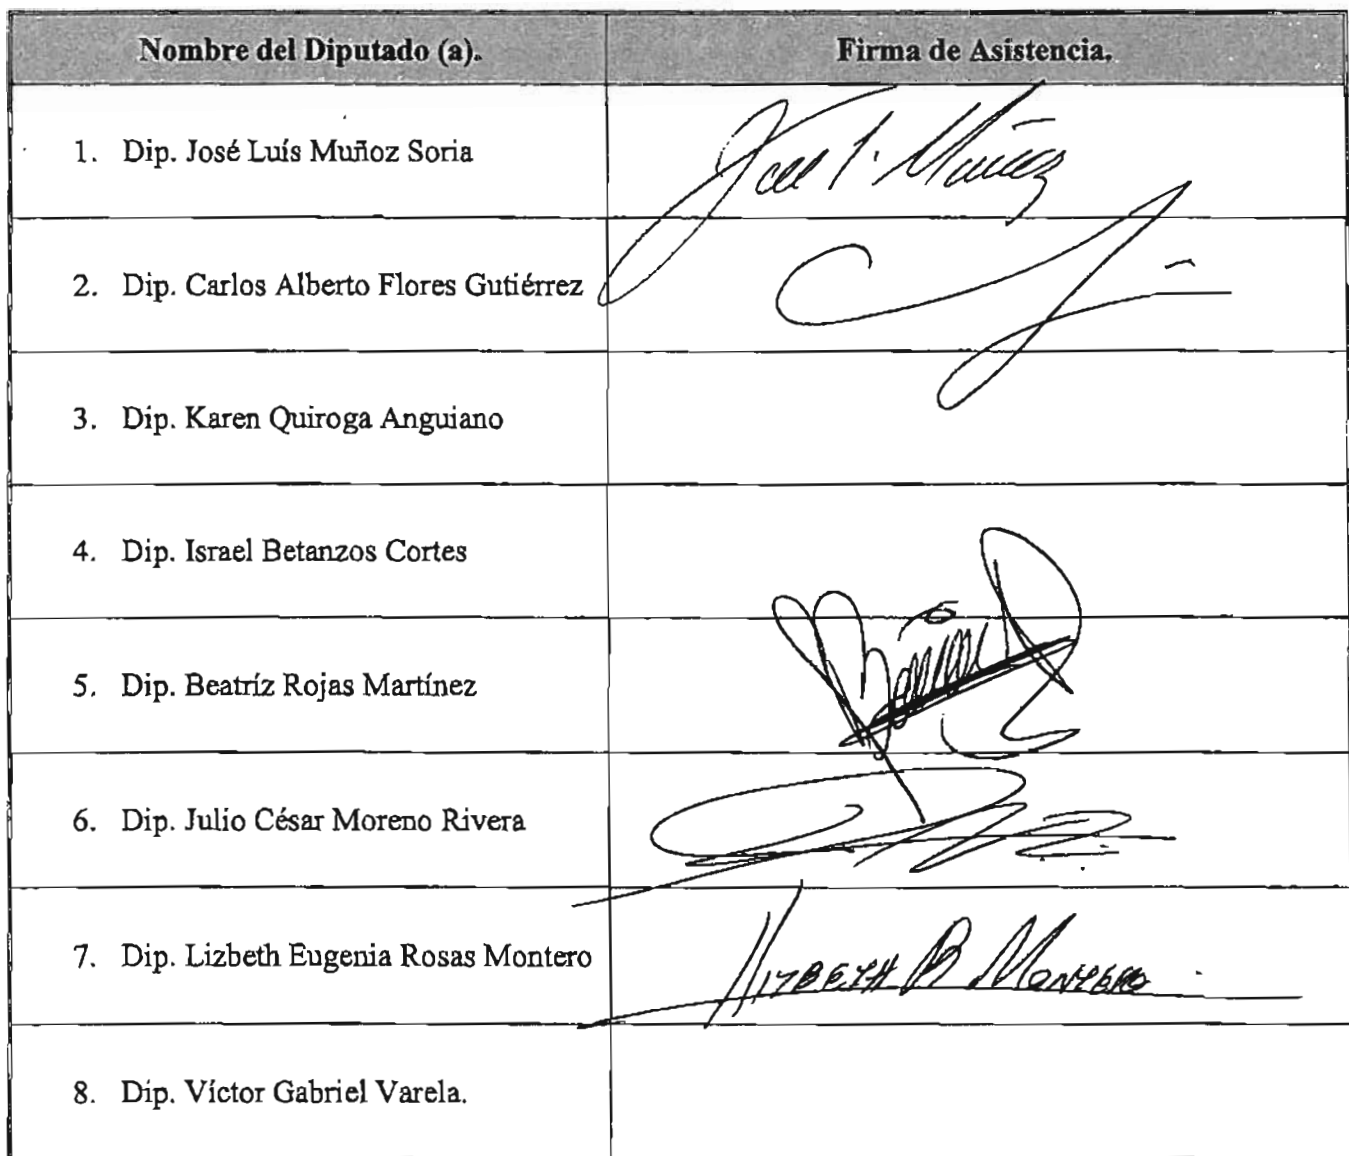 Nombre del Diputado (a).
Firma de Asistencia.
1. Dip. José Luís Muñoz Soria
2. Dip. Carlos Alberto Flores Gutiérrez
3. Dip. Karen Quiroga Anguiano
4. Dip. Israel Betanzos Cortes
5. Dip. Beatríz Rojas Martínez
6. Dip. Julio César Moreno Rivera
7. Dip. Lizbeth Eugenia Rosas Montero
Lizbeth R Montero
8. Dip. Víctor Gabriel Varela.